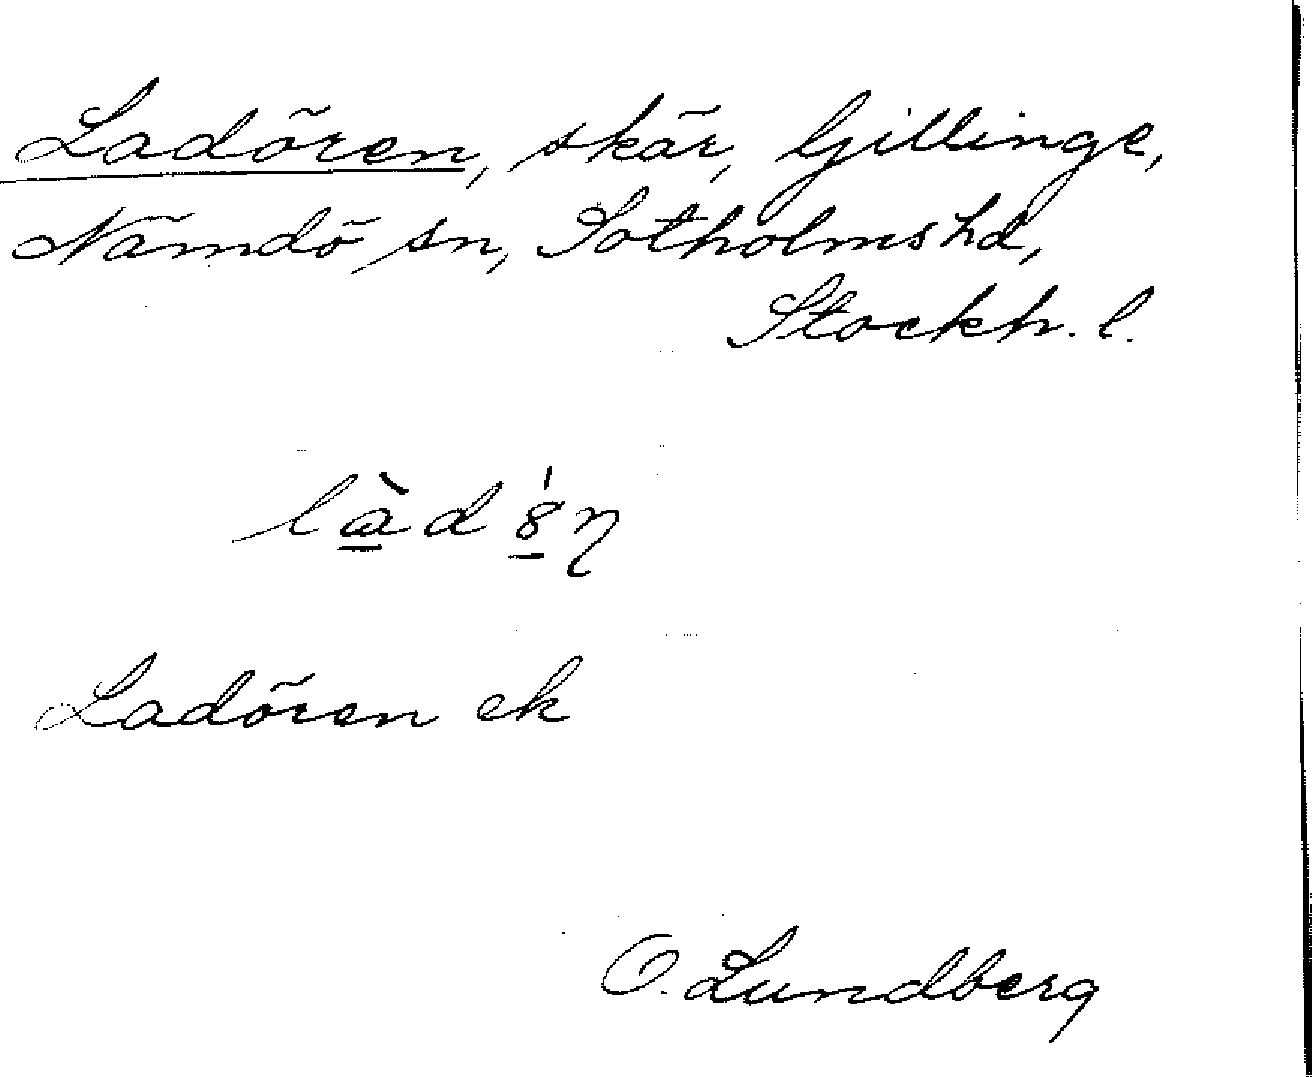 Ladören, skär, Gillinge,
Nämdö sn, Sotholms hd,
Stockh. l.
Ladören ek
O. Lundberg